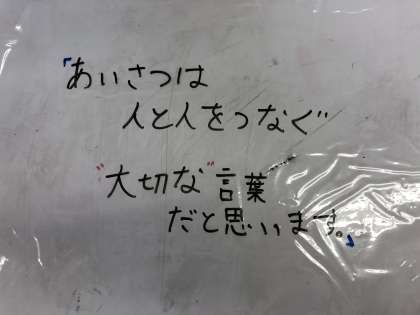 「あいさつは
人と人をつなぐ
"大切な"言葉
だと思います。」